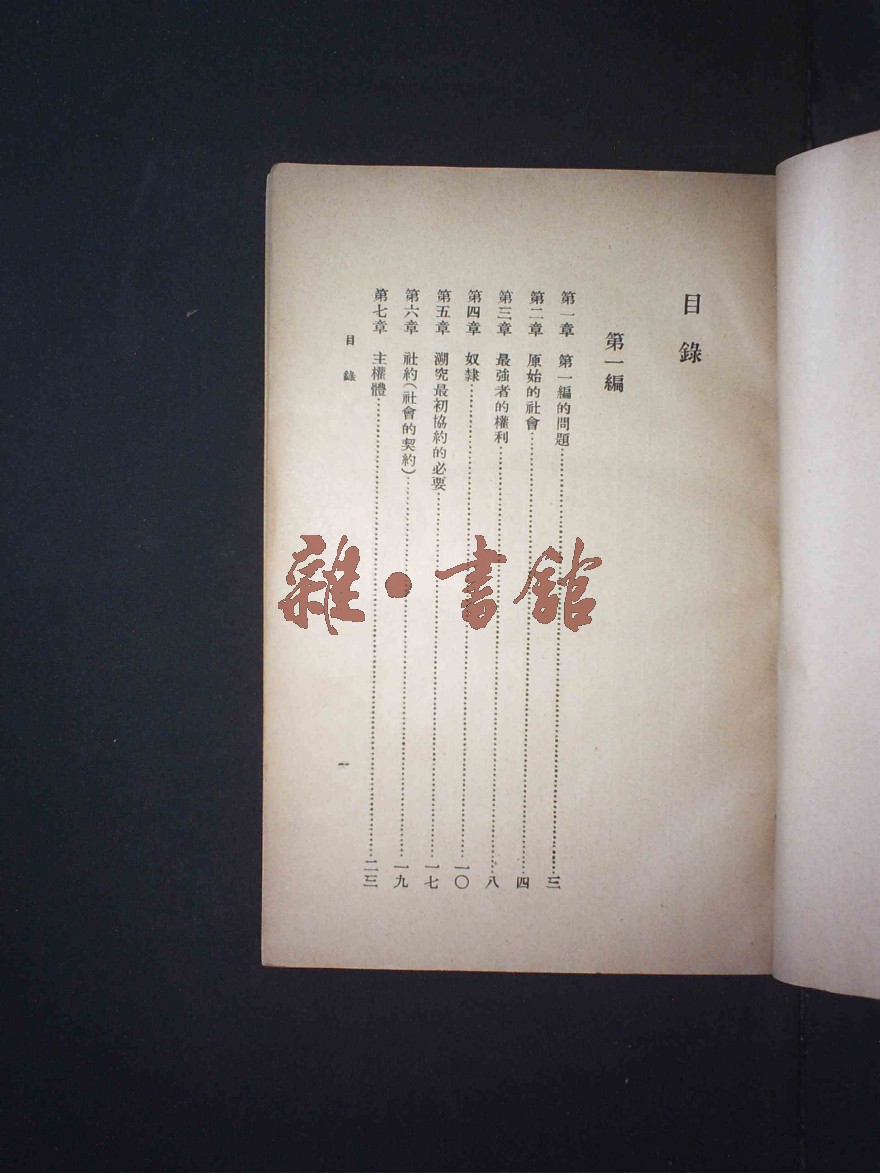 目錄
第一編
第一章 第一編的問題……三
第二章 原始的社會……四
第三章 最強者的權利……八
第四章 奴隸……一〇
第五章 溯究最初協約的必要……一七
第六章 社約(社會的契約)……一九
第七章 主權體……二三
目錄
一
雜·書館